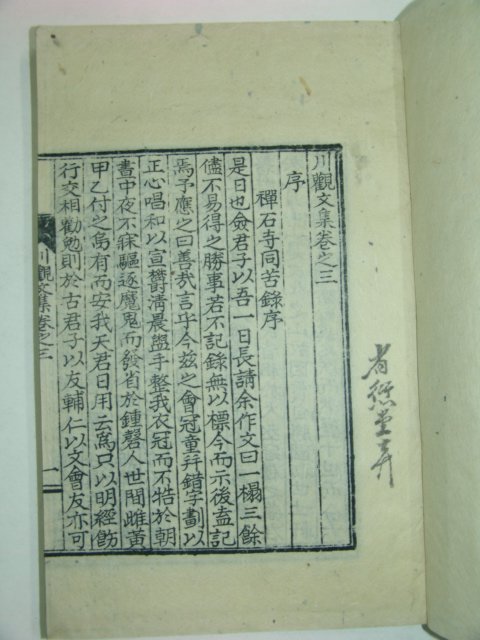 川觀文集卷之三
序
禪石寺同苦錄序
是日也僉君子以吾一日長請余作文曰一榻三餘
儘不易得之勝事若不記錄無以標今而示後盍記
焉予應之曰善㢤言乎今玆之會冠童幷錯字劃以
正心唱和以宣欝淸晨盥手整我衣冠而不牿於朝
晝中夜不寐驅逐魔鬼而發省於鍾磬人世間雌黃
甲乙付之烏有而安我天君日用云爲只以明經飭
行交相勸勉則於古君子以友輔仁以文會友亦可
川觀文集卷之三
一
省
堂